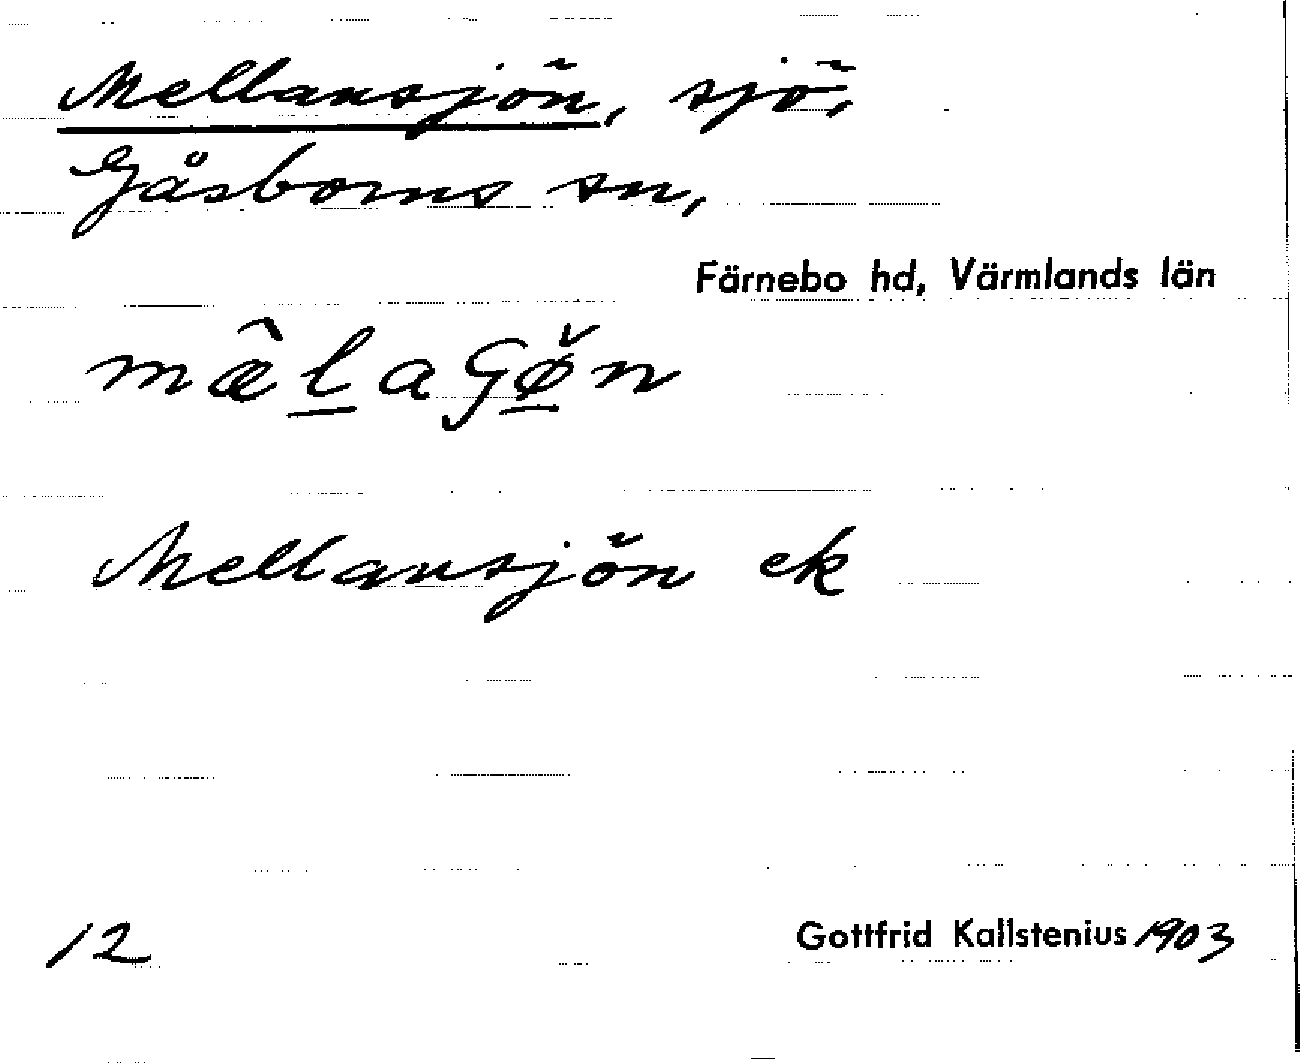 Mellansjön, sjö,
Gåsborns sn,
Färnebo hd, Värmlands län
mæ̂l̲aGø̲̌n
Mellansjön ek
12
Gottfrid Kallstenius 1903